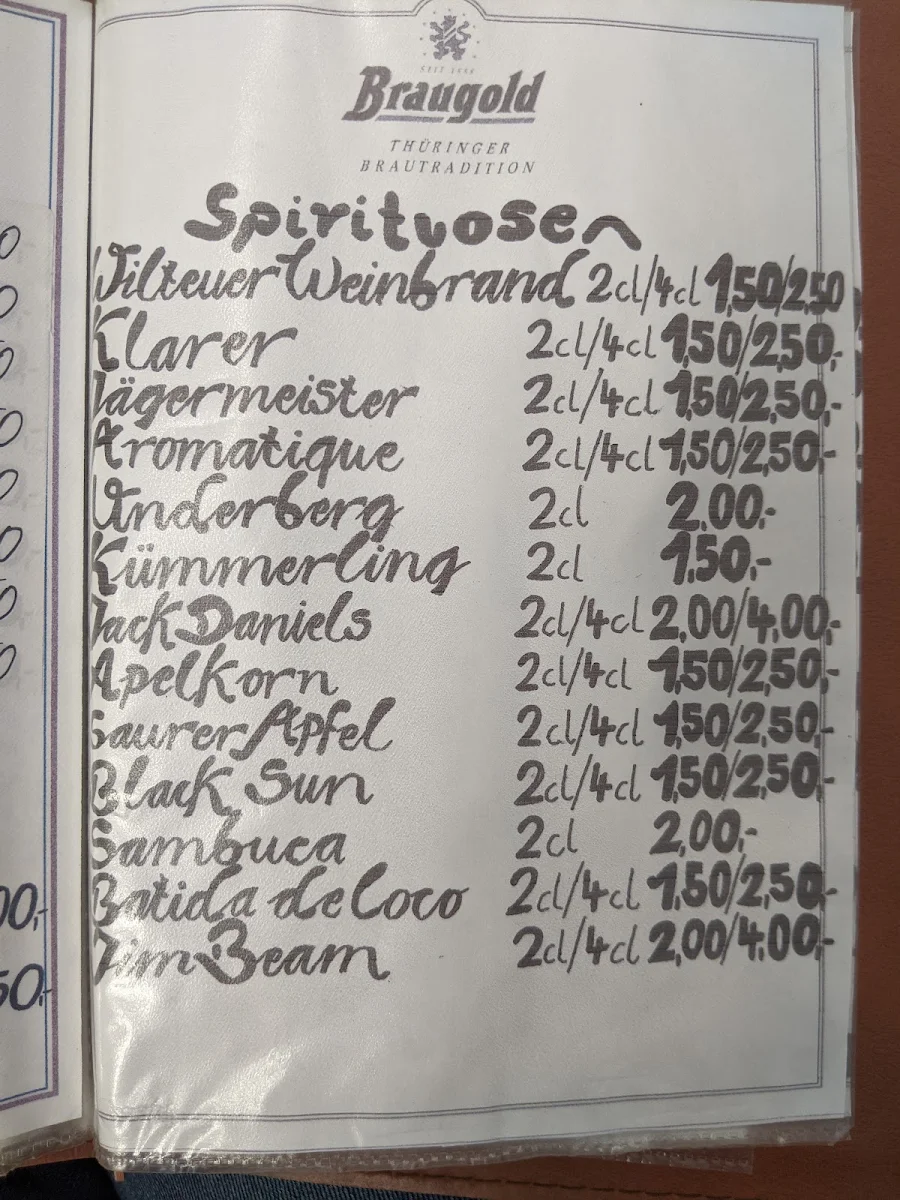 SEIT 1888
Braugold
THÜRINGER
BRAUTRADITION
Spirituosen
Wilteuer Weinbrand 2cl/4cl 1,50/2,50
Klarer 2cl/4cl 1,50/2,50,-
Jägermeister 2cl/4cl 1,50/2,50,-
Aromatique 2cl/4cl 1,50/2,50,-
Underberg 2cl 2.00,-
Kümmerling 2cl 1.50,-
Jack Daniels 2cl/4cl 2,00/4,00,-
Apelkorn 2cl/4cl 1,50/2,50,-
Saurer Apfel 2cl/4cl 1,50/2,50,-
Black Sun 2cl/4cl 1,50/2,50,-
Sambuca 2cl 2,00,-
Batida de Coco 2cl/4cl 1,50/2,50,-
Jim Beam 2cl/4cl 2,00/4.00,-
00,-
50,-